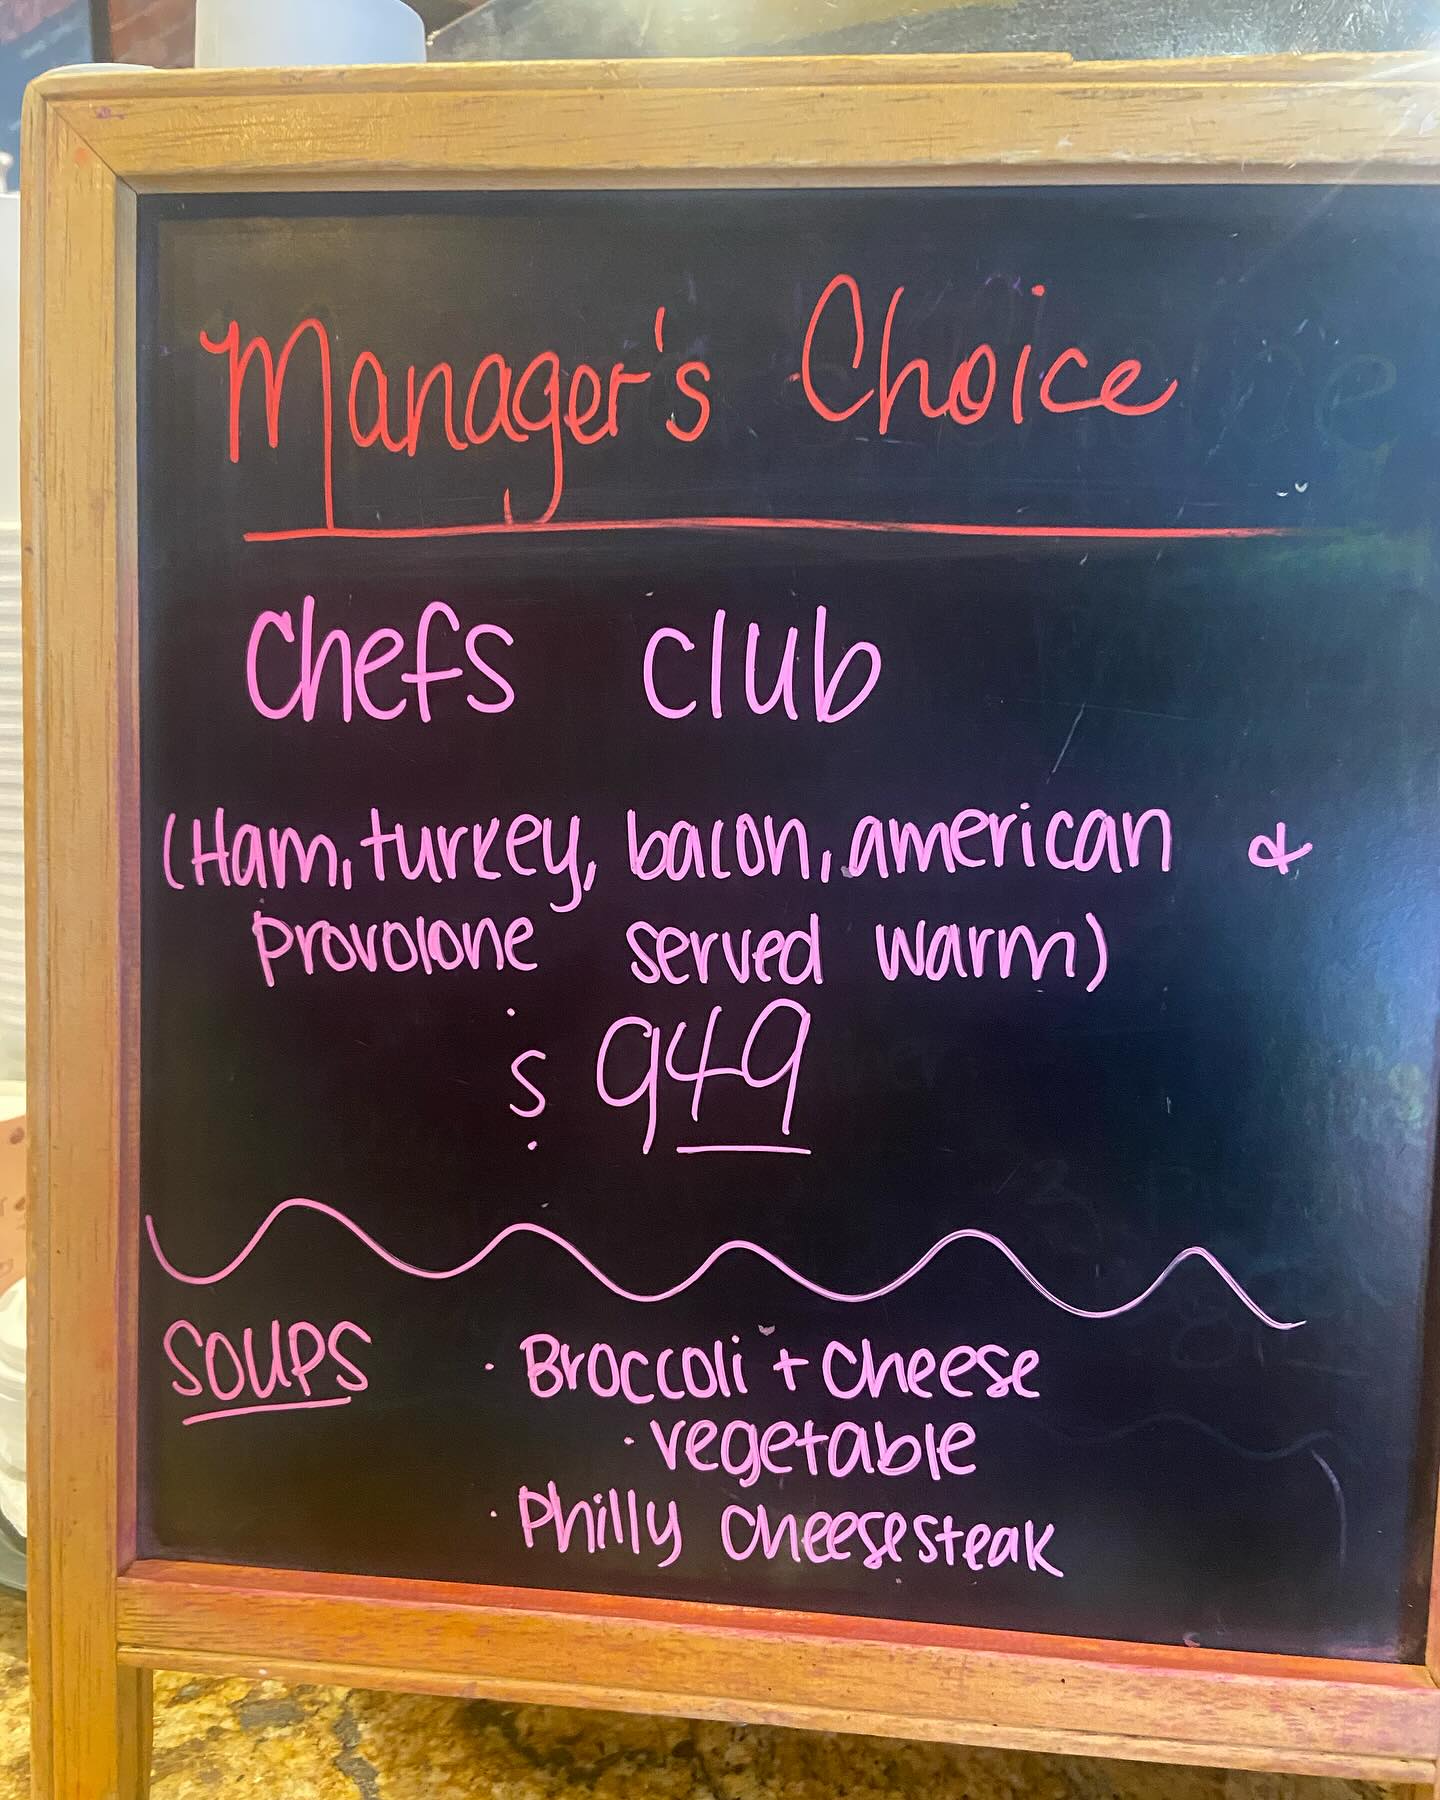 Manager's Choice
Chefs club
(Ham, turkey, bacon, american &
provolone served warm)
$ 949
SOUPS · Broccoli + cheese
· vegetable
· Philly cheesesteak